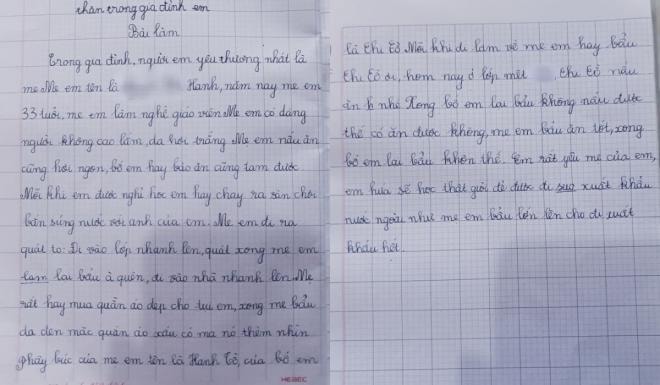 thân trong gia đình em
Bài làm
Trong gia đình, người em yêu thương nhất là
mẹ. Mẹ em tên là Hạnh, năm nay mẹ em
33 tuổi, mẹ em làm nghề giáo viên. Mẹ em có dáng
người không cao lắm, da hơi trắng. Mẹ em nấu ăn
cũng hơi ngon, bố em hay bảo ăn cũng tạm được.
Mỗi khi em được nghỉ học em hay chạy ra sân chơi
bắn súng nước với anh của em. Mẹ em đi ra
quát to: Đi vào lớp nhanh lên, quát xong mẹ em
lại bẩu à quên, đi vào nhà nhanh lên. Mẹ
rất hay mua quần áo đẹp cho tụi em, xong mẹ bẩu
da đen mặc quần áo xấu có ma nó thèm nhìn
phây búc của mẹ em tên là Hạnh Tồ, của bố em
là Thi Tồ. Mỗi khi đi làm về mẹ em hay bẩu
Thi Tồ ơi, hôm nay ở lớp mệt, Thi Tồ nấu
ăn nhé. Xong bố em lại bẩu không nấu được
thế có ăn được không, mẹ em bẩu ăn tốt, xong
bố em lại bẩu khôn thế. Em rất yêu mẹ của em,
em hứa sẽ học thật giỏi để được đi xuất khẩu
nước ngoài như mẹ em bẩu lớn lên cho đi xuất
khẩu hết.
HEBEC